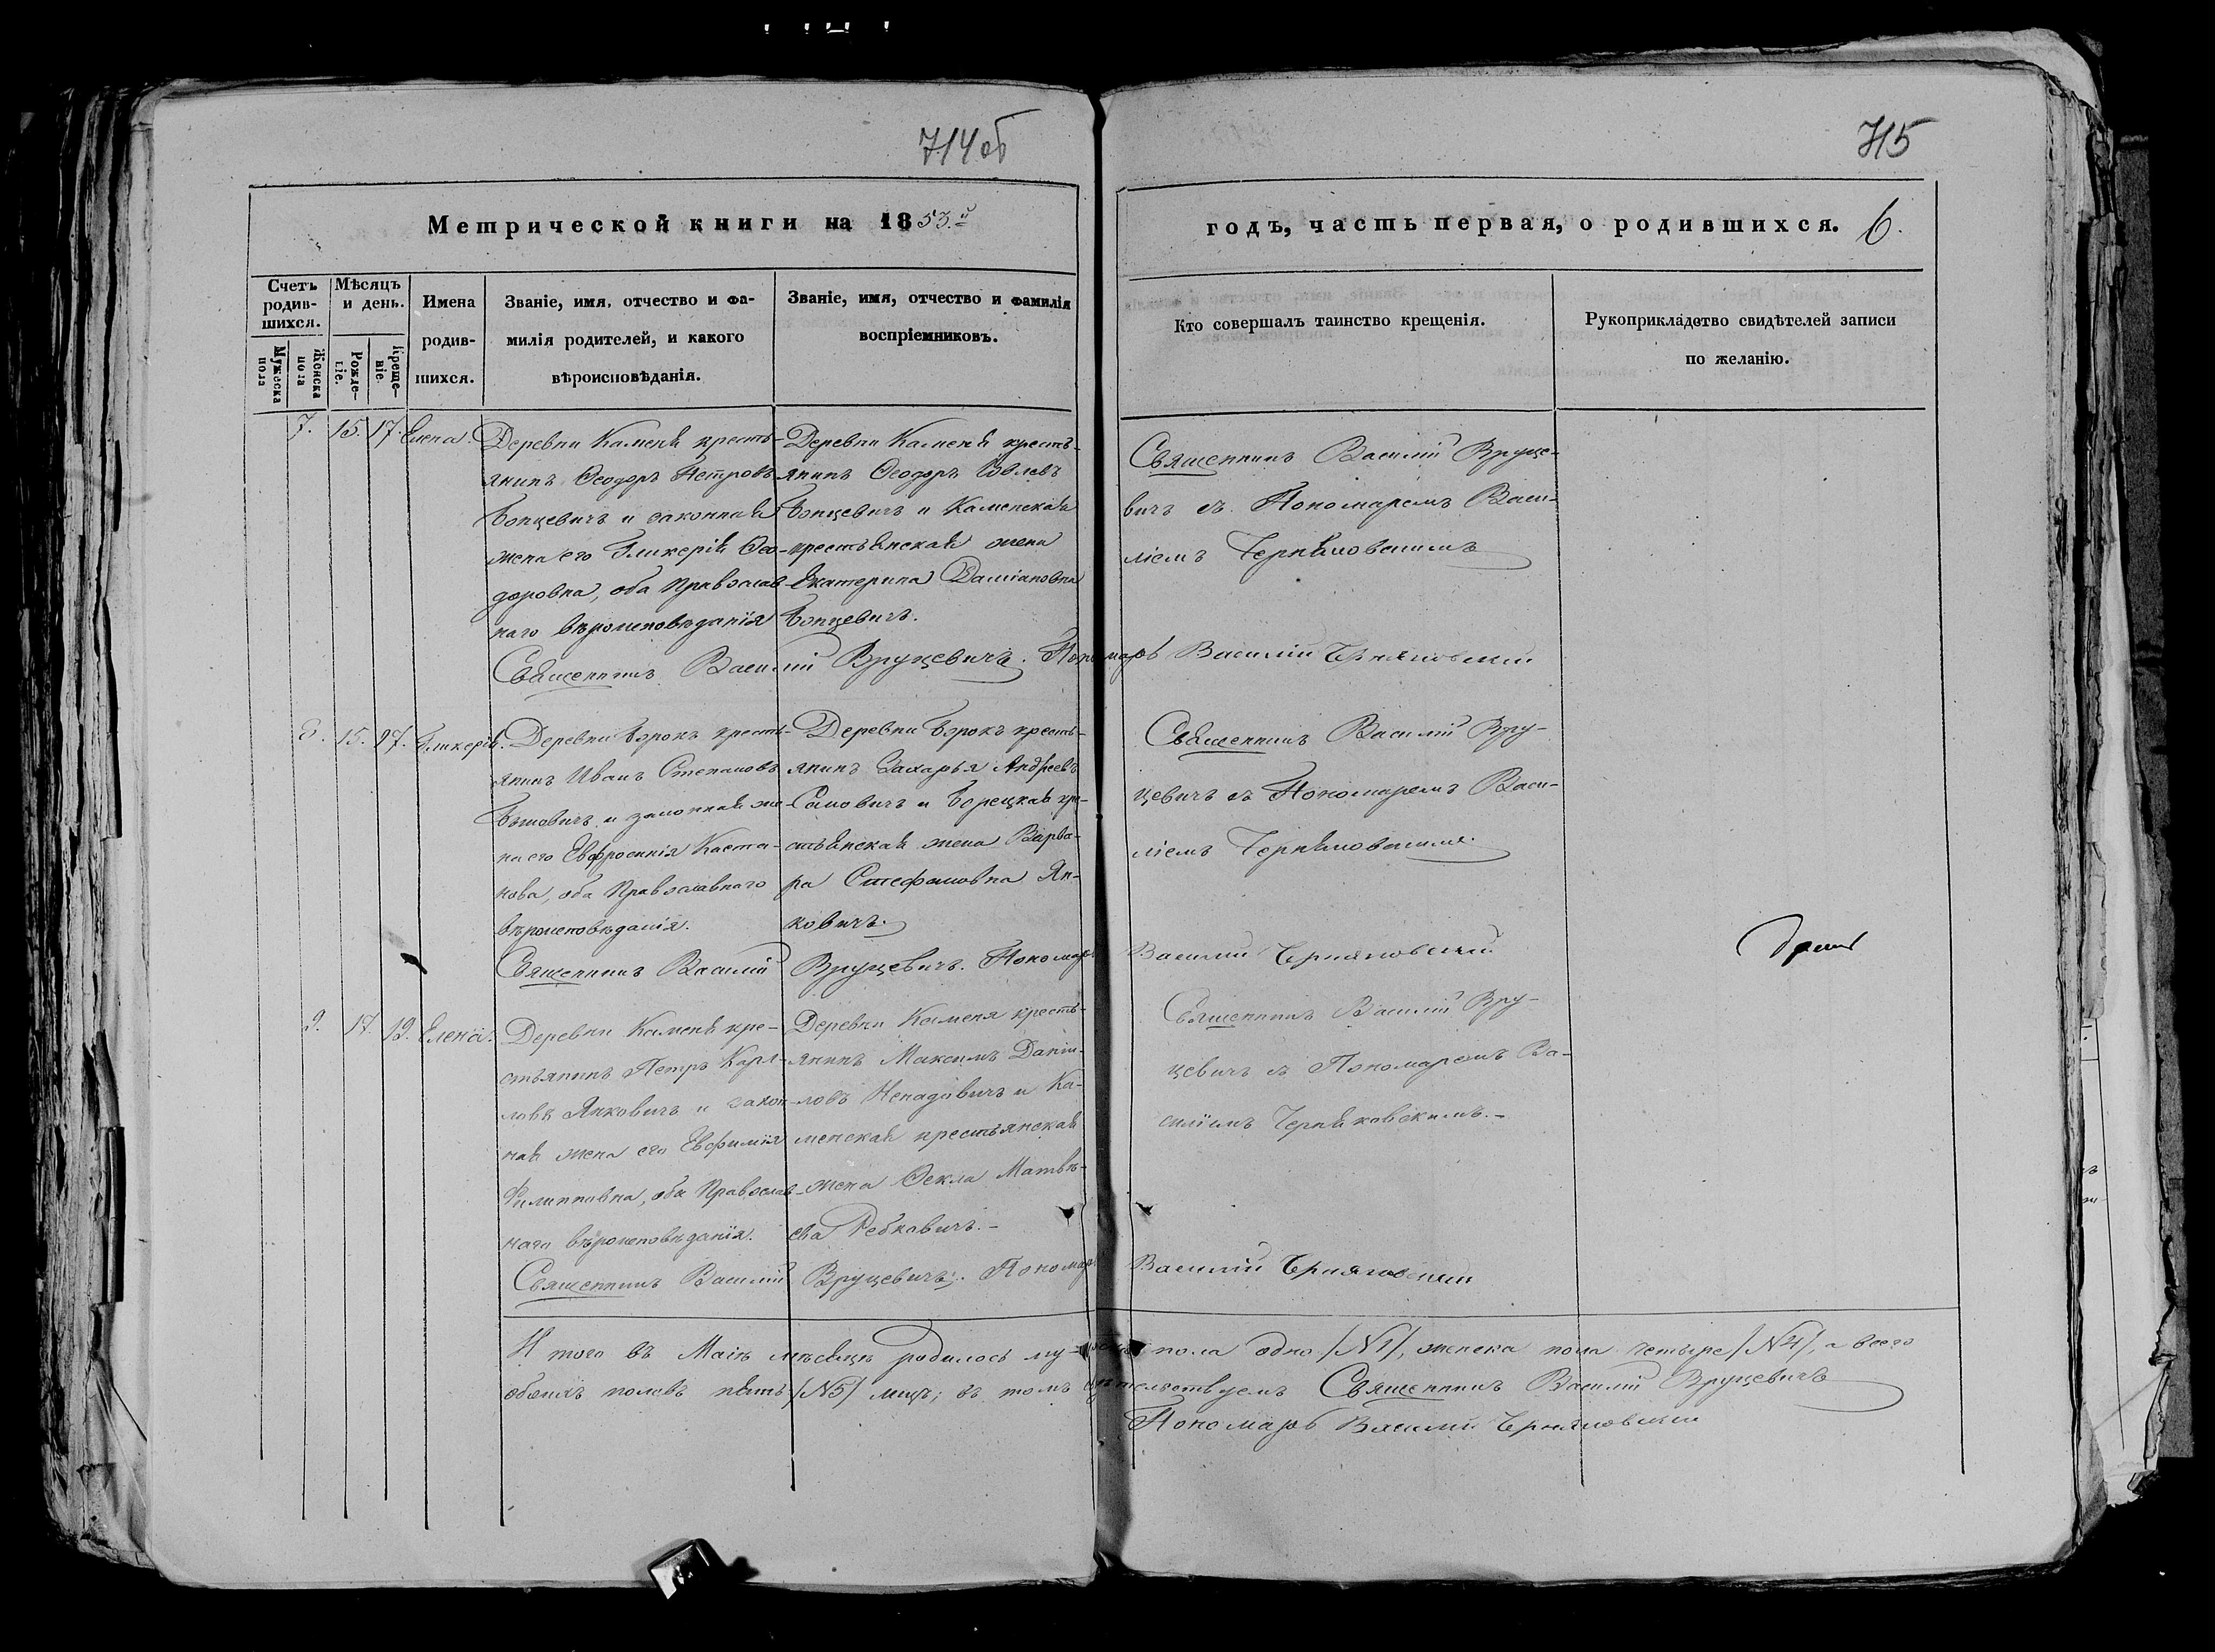 714 об
715
Метрической книги на 1853й
годъ, часть первая, о родившихся. 6.
Счетъ родившихся.
Мужеска пола
Женска пола
Мѣсяцъ и день.
Рождение.
Крещение.
Имена
родив-
шихся.
Званіе, имя, отчество и фа-
милія родителей, и какого
вѣроисповѣданія.
Званіе, имя, отчество и фамилія
воспріемниковъ.
Кто совершалъ таинство крещенія.
Рукоприкладство свидѣтелей записи
по желанію.
7. 15. 17. Елена.
Деревни Каменя кресть-
янинъ Ѳеодоръ Петровъ
Бопцевичъ и законная
жена его Гликерія Ѳео-
доровна, оба Православ-
наго вѣроисповѣданія
Деревни Каменя кресть-
янинъ Ѳеодоръ
Бопцевичъ и Каменская
крестьянская жена
Екатерина Даміановна
Бопцевичъ.
Священникъ Василій Вруце-
вичъ съ Пономаремъ Васи-
ліемъ Черняковскимъ
Священникъ Василій Вруцевичъ. Пономарь Василій Черняковскій
8. 15. 17. Гликерія.
Деревни Борокъ кресть-
янинъ Иванъ Степановъ
и законная же-
на его Евфросинія Каста-
нова, оба Православнаго
вѣроисповѣданія.
Деревни Борокъ кресть-
янинъ Захарья Андреевъ
Самовичъ и Борецкая кре-
стьянская жена Варва-
ра Стефановна Ян-
ковичъ.
Священникъ Василій Вру-
цевичъ съ Пономаремъ Васи-
ліемъ Черняковскимъ.
Священникъ Василій Вруцевичъ. Пономарь Василій Черняковскій
9. 17. 19. Елена.
Деревни Каменя кре-
стьянинъ Петръ Карп-
ловъ Янковичъ и закон-
ная жена его Евфимія
Филипповна, оба Православ-
наго вѣроисповѣданія.
Деревни Каменя кресть-
янинъ Максимъ Дани-
ловъ Ненадовичъ и Ка-
менская крестьянская
жена Ѳекла Матвѣ-
ева Ребковичъ.
Священникъ Василій Вру-
цевичъ съ Пономаремъ Ва-
силіемъ Черняковскимъ.
Священникъ Василій Вруцевичъ. Пономарь Василій Черняковскій
Итого въ Маіѣ мѣсяцѣ родилось му- пола одно /N1/, женска пола четыре /N4/, а всего
обоихъ половъ пять /N5/ лицъ; въ томъ Священникъ Василій Вруцевичъ
Пономарь Василій Черняковскій